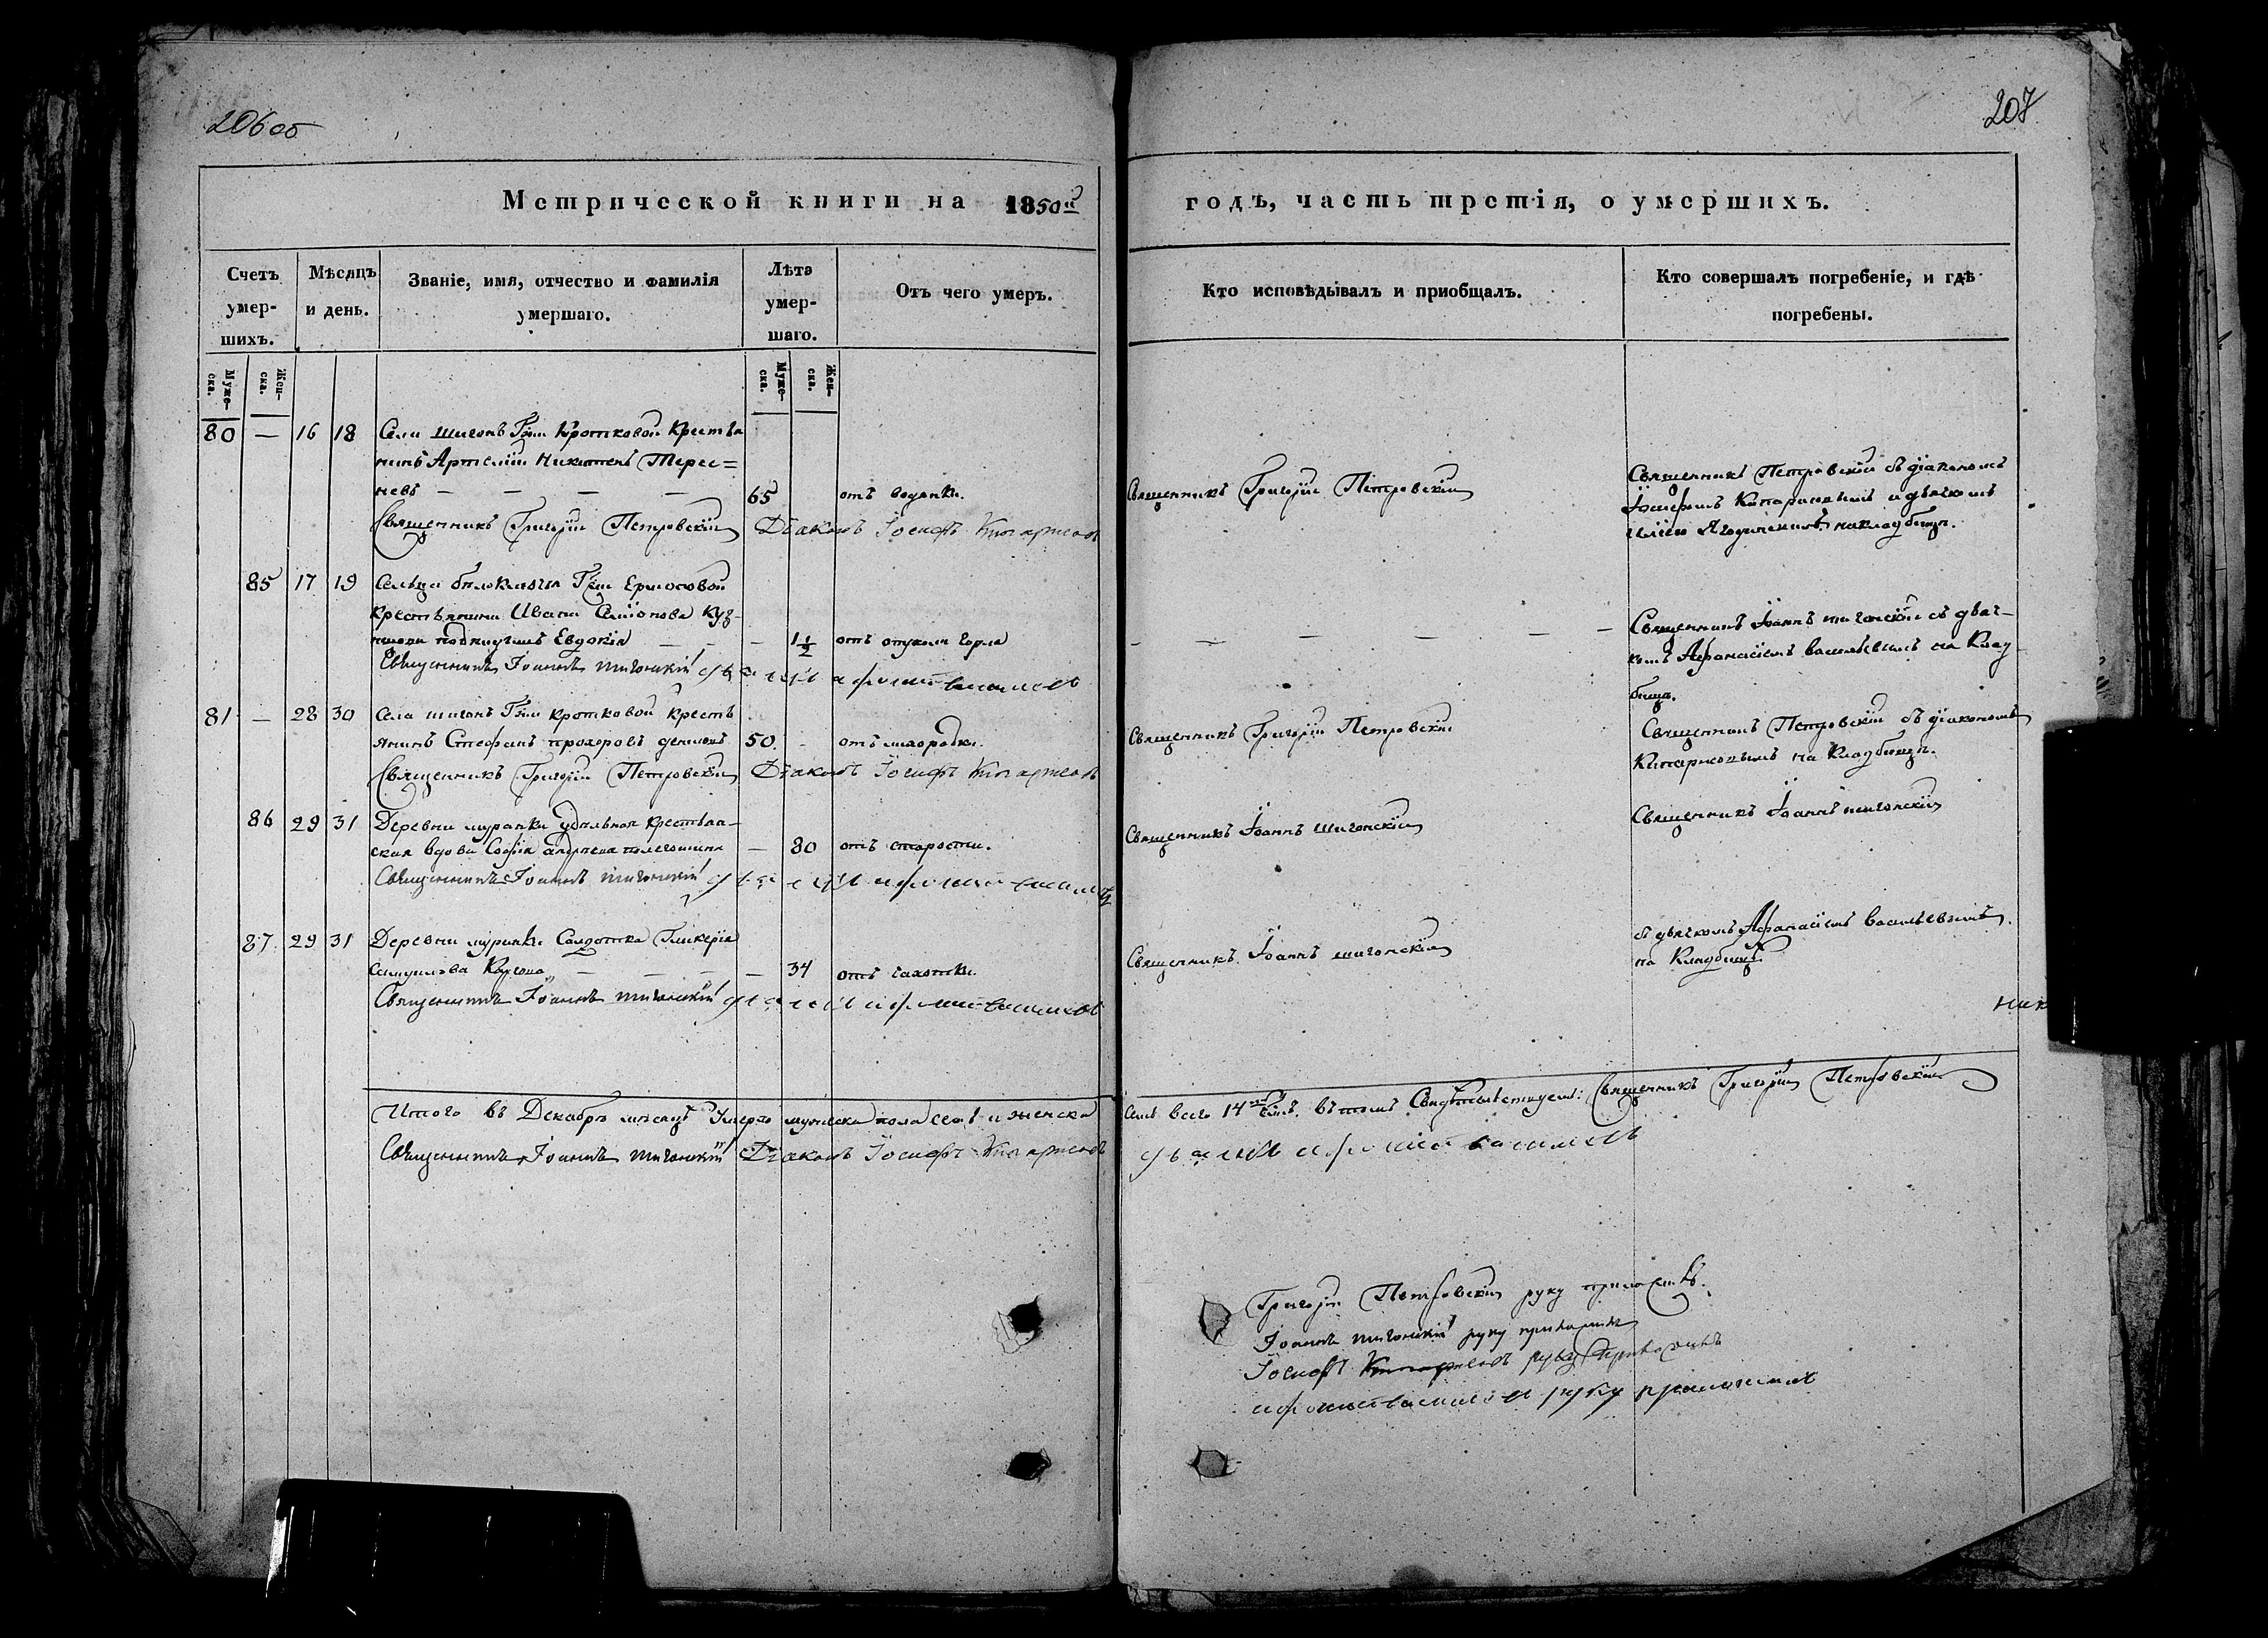 206 об
207
Метрической книги на 1850й
годъ, часть третія, о умершихъ.
Счетъ умер-
шихъ.
Мѣсяцъ
и день.
Званіе, имя, отчество и фамилія
умершаго.
Лѣта
умер-
шаго.
Отъ чего умеръ.
Кто исповѣдывалъ и пріобщалъ.
Кто совершалъ погребеніе, и гдѣ
погребены.
Муже-
ска.
Жен-
ска.
Муже-
ска.
Жен-
ска.
80 — 16 18 Села Шигонъ Гжи Кротковой Крестья
нинъ Артемій Никитинъ
невъ — — — — 65 отъ водянки.
Священникъ Григорій Петровскій Діаконъ Іосифъ Кипарисовъ
Священникъ Григорій Петровскій
Священникъ Петровскій съ діакономъ
Іосифомъ Кипарисовымъ и дьячкомъ
на кладбищѣ.
85 17 19 Сельца Гжи Ермоловой
крестьянина Ивана Семіонова Куз-
подкидышъ Евдокія — — — 1 1/2 отъ опухоли горла
Священникъ Іоаннъ Шигонскій
— — — — — —
Священникъ Іоаннъ Шигонскій съ дьяч-
комъ Афанасіемъ Васильевымъ на Клад
бищѣ.
81 — 28 30 Села Шигонъ Гжи Кротковой кресть
янинъ Стефанъ Прохоровъ 50. - отъ лихорадки.
Священникъ Григорій Петровскій Діаконъ Іосифъ Кипарисовъ
Священникъ Григорій Петровскій
Священникъ Петровскій съ діакономъ
Кипарисовымъ на Кладбищѣ.
86 29 31 Деревни Муранки удѣльная крестьян-
ская вдова Софія — 80 отъ старости.
Священникъ Іоаннъ Шигонскій
Священникъ Іоаннъ Шигонскій
Священникъ Іоаннъ Шигонскій
87 29 31 Деревни Муранки Солдатка Гликерія
Самуилова — — — — 34 отъ чахотки.
Священникъ Іоаннъ Шигонскій
Священникъ Іоаннъ Шигонскій
съ дьячкомъ Афанасіемъ Васильевымъ.
на Кладбищѣ.
Итого въ Декабрѣ мѣсяцѣ Умерло мужеска пола семь и женска
семь всего 14ть Свидѣтельствуемъ: Священникъ Григорій Петровскій
Священникъ Іоаннъ Шигонскій Діаконъ Іосифъ Кипарисовъ
Григорій Петровскій руку приложилъ.
Іоаннъ Шигонскій руку приложилъ
Іосифъ Кипарисовъ руку приложилъ
руку приложилъ